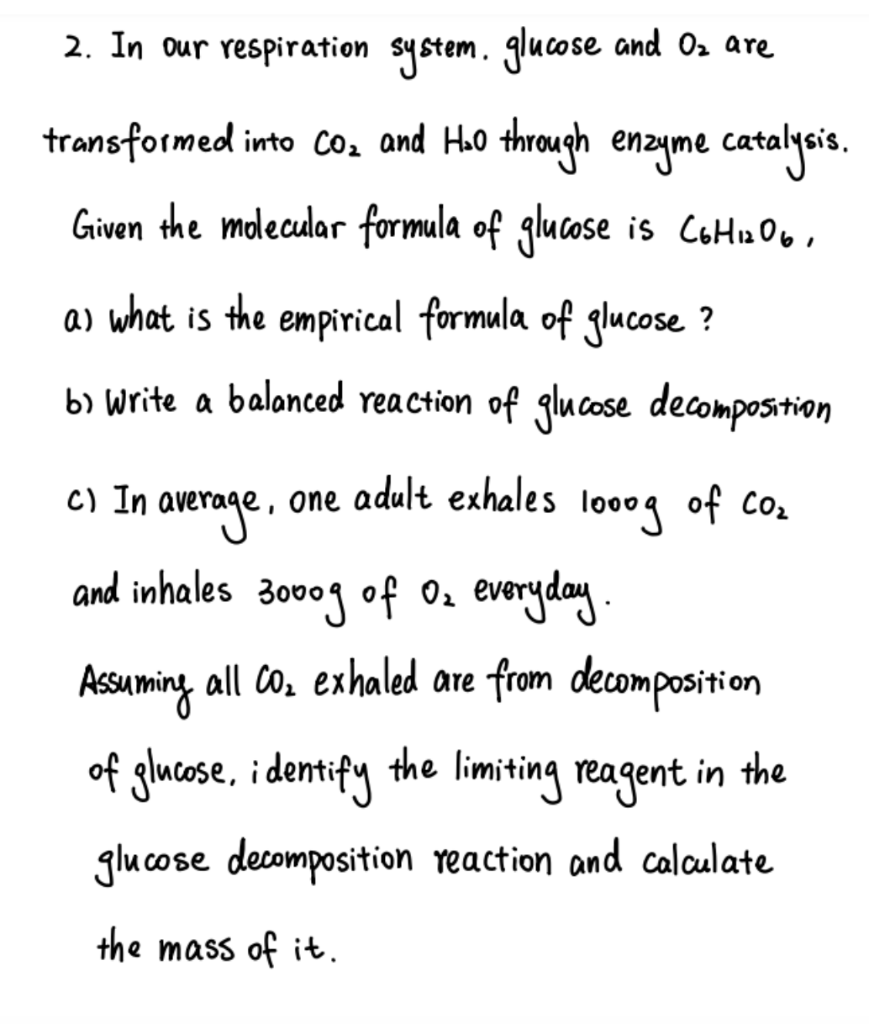 2. In our respiration system. glucose and O₂ are
transformed into CO₂ and H₂O through enzyme catalysis.
Given the molecular formula of glucose is C₆H₁₂O₆,
a) what is the empirical formula of glucose ?
b) Write a balanced reaction of glucose decomposition
c) In average, one adult exhales 1000g of CO₂
and inhales 3000g of O₂ everyday.
Assuming all CO₂ exhaled are from decomposition
of glucose, identify the limiting reagent in the
glucose decomposition reaction and calculate
the mass of it.